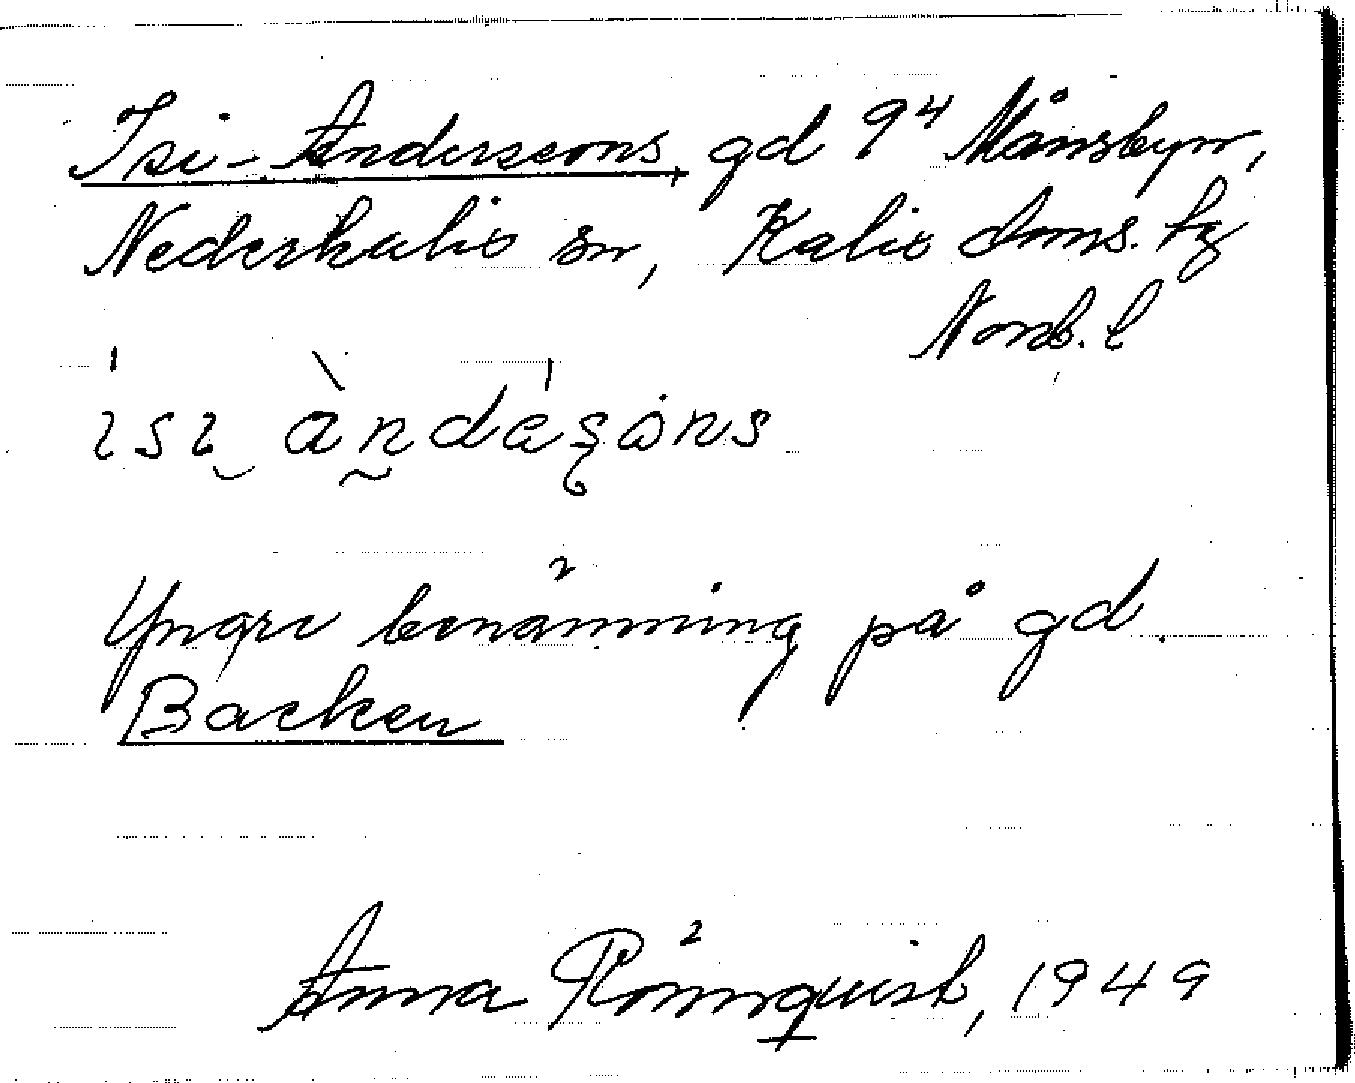 Isi-Anderssons, gd 9⁴ Månsbyn,
Nederkalix sn, Kalix doms. tg
Norrb. l
ìsi àndàşȧns
Yngre benämning på gd
Backen
Anna Rönnquist, 1949